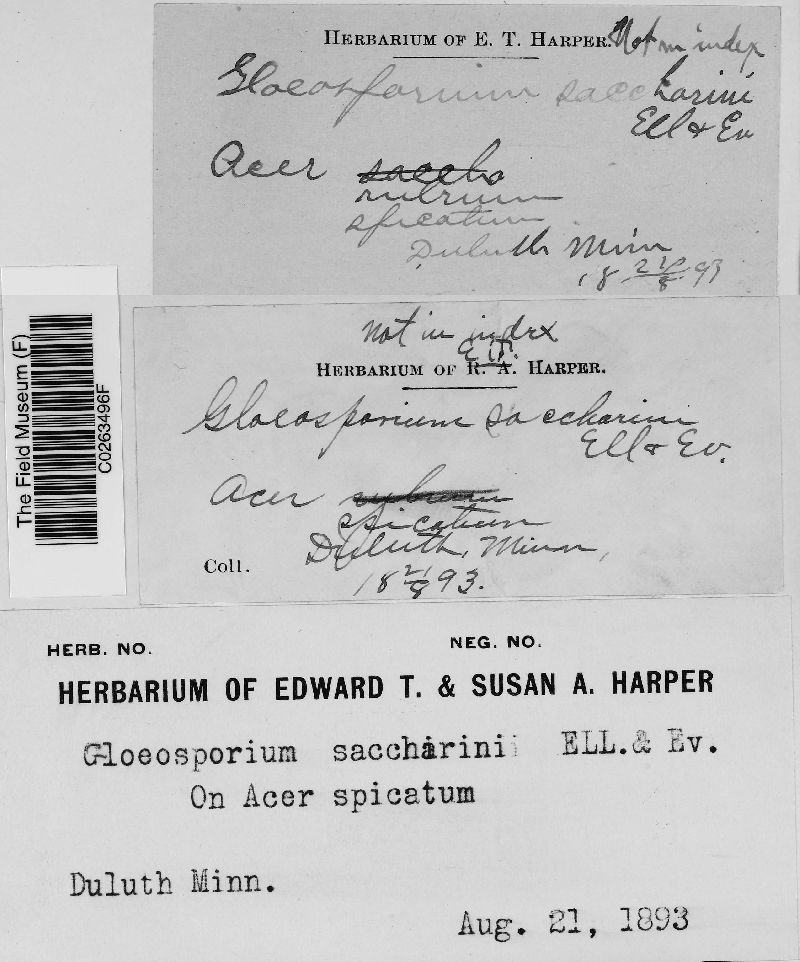 HERBARIUM OF E. T. HARPER. Not in index
Gloeosporium saccharini
Ell & Ev
Acer saccho
rubrum
spicatum
Duluth Minn
18 21/8 93
The Field Museum (F)
C0263496F
not in index
E. T.
HERBARIUM OF R. A. HARPER.
Gloeosporium saccharini
Ell & Ev.
Acer rubrum
spicatum
Duluth, Minn,
Coll.
18 21/8 93.
HERB. NO. NEG. NO.
HERBARIUM OF EDWARD T. & SUSAN A. HARPER
Gloeosporium saccharini ELL.& Ev.
On Acer spicatum
Duluth Minn.
Aug. 21, 1893